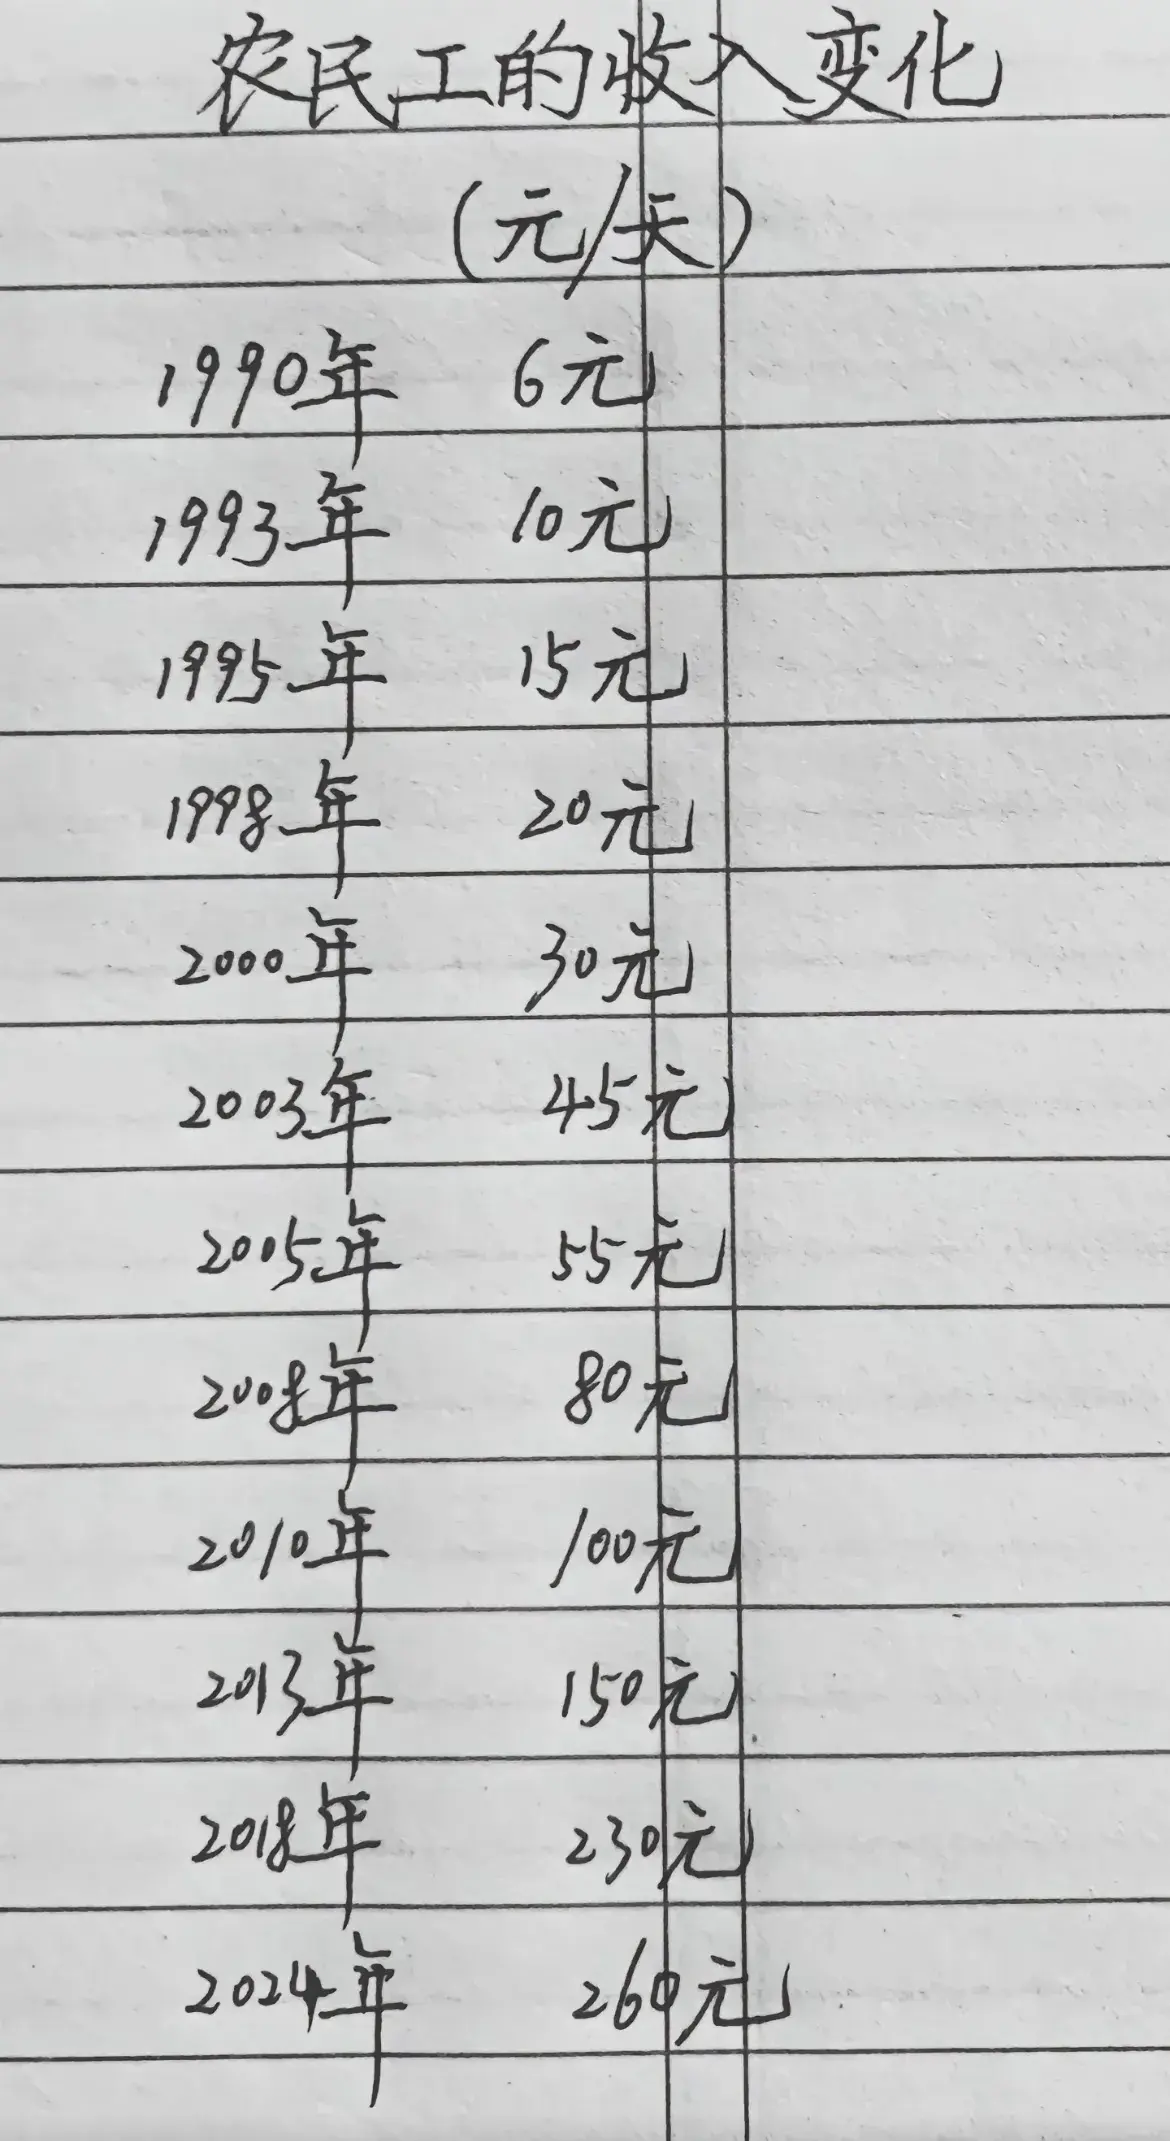 农民工的收入变化
(元/天)
1990年 6元
1993年 10元
1995年 15元
1998年 20元
2000年 30元
2003年 45元
2005年 55元
2008年 80元
2010年 100元
2013年 150元
2018年 230元
2024年 260元